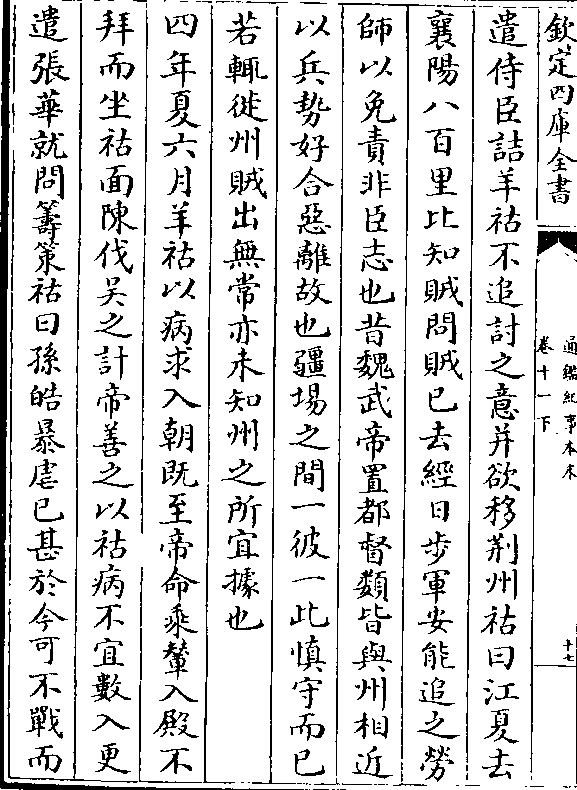 欽定四庫全書
通鑑紀事本末
卷十一下
十七
遣侍臣詰羊祜不追討之意并欲移荆州祜曰江夏去
襄陽八百里比知賊問賊已去經日步軍安能追之勞
師以免責非臣志也昔魏武帝置都督類皆與州相近
以兵勢好合惡離故也疆場之間一彼一此慎守而已
若輒徙州賊出無常亦未知州之所宜據也
四年夏六月羊祜以病求入朝既至帝命乘輦入殿不
拜而坐祜面陳伐吴之計帝善之以祜病不宜數入更
遣張華就問籌策祜曰孫皓暴虐已甚於今可不戰而